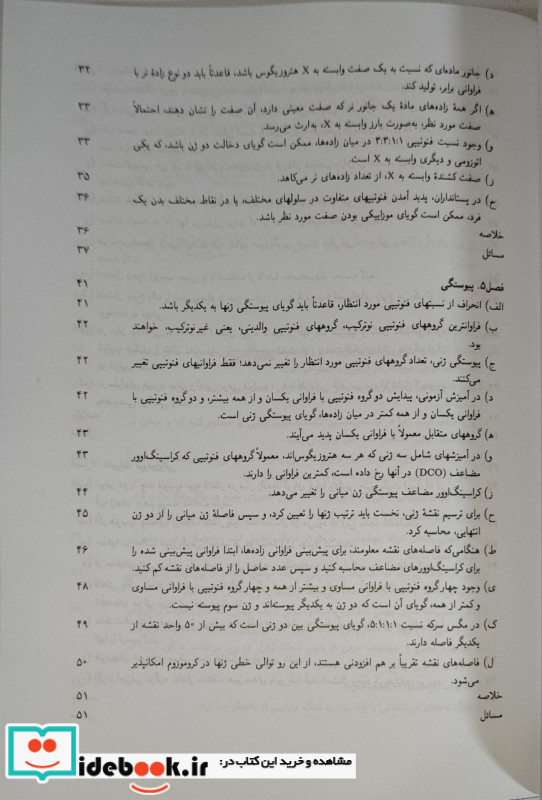 د) جانور ماده‌ای که نسبت به یک صفت وابسته به X هتروزیگوس باشد، قاعدتاً باید دو نوع زادهٔ نر با ۳۲
فراوانی برابر، تولید کند.
ه) اگر همهٔ زاده‌های مادهٔ یک جانور نر که صفت معینی دارد، آن صفت را نشان دهند، احتمالاً ۳۳
صفت مورد نظر، به‌صورت بارز وابسته به X، به‌ارث می‌رسد.
و) وجود نسبت فنوتیپی ۳:۳:۱:۱ در میان زاده‌ها، ممکن است گویای دخالت دو ژن باشد، که یکی ۳۳
اتوزومی و دیگری وابسته به X است.
ز) صفت کشندهٔ وابسته به X، از تعداد زاده‌های نر می‌کاهد. ۳۵
ح) در پستانداران، پدید آمدن فنوتیپهای متفاوت در سلولهای مختلف، یا در نقاط مختلف بدن یک ۳۶
فرد، ممکن است گویای موزاییکی بودن صفت مورد نظر باشد.
خلاصه ۳۶
مسائل ۳۷
فصل۵. پیوستگی ۴۱
الف) انحراف از نسبتهای فنوتیپی مورد انتظار، قاعدتاً باید گویای پیوستگی ژنها به یکدیگر باشد. ۴۱
ب) فراوانترین گروههای فنوتیپی نوترکیب، گروههای فنوتیپی والدینی، یعنی غیرنوترکیب، خواهند ۴۲
بود.
ج) پیوستگی ژنی، تعداد گروههای فنوتیپی مورد انتظار را تغییر نمی‌دهد؛ فقط فراوانیهای فنوتیپی تغییر ۴۲
می‌کنند.
د) در آمیزش آزمونی، پیدایش دو گروه فنوتیپی با فراوانی یکسان و از همه بیشتر، و دو گروه فنوتیپی با ۴۲
فراوانی یکسان و از همه کمتر در میان زاده‌ها، گویای پیوستگی ژنی است.
ه) گروههای متقابل معمولاً با فراوانی یکسان پدید می‌آیند. ۴۳
و) در آمیزشهای شامل سه ژنی که هر سه هتروزیگوس‌اند، معمولاً گروههای فنوتیپی که کراسینگ‌اوور ۴۳
مضاعف (DCO) در آنها رخ داده است، کمترین فراوانی را دارند.
ز) کراسینگ‌اوور مضاعف پیوستگی ژن میانی را تغییر می‌دهد. ۴۴
ح) برای ترسیم نقشهٔ ژنی، نخست باید ترتیب ژنها را تعیین کرد، و سپس فاصلهٔ ژن میانی را از دو ژن ۴۵
انتهایی، محاسبه کرد.
ط) هنگامی‌که فاصله‌های نقشه معلومند، برای پیش‌بینی فراوانی زاده‌ها، ابتدا فراوانی پیش‌بینی شده را ۴۶
برای کراسینگ‌اوورهای مضاعف محاسبه کنید و سپس عدد حاصل را از فاصله‌های نقشه کم کنید.
ی) وجود چهار گروه فنوتیپی با فراوانی مساوی و بیشتر از همه و چهار گروه فنوتیپی با فراوانی مساوی ۴۸
و کمتر از همه، گویای آن است که دو ژن به یکدیگر پیوسته‌اند و ژن سوم پیوسته نیست.
ک) در مگس سرکه نسبت ۵:۱:۱:۱، گویای پیوستگی بین دو ژنی است که بیش از ۵۰ واحد نقشه از ۴۹
یکدیگر فاصله دارند.
ل) فاصله‌های نقشه تقریباً بر هم افزودنی هستند، از این رو توالی خطی ژنها در کروموزوم امکانپذیر ۵۰
می‌شود.
خلاصه ۵۱
مسائل ۵۱
مشاهده و خرید این کتاب در:
idebook.ir